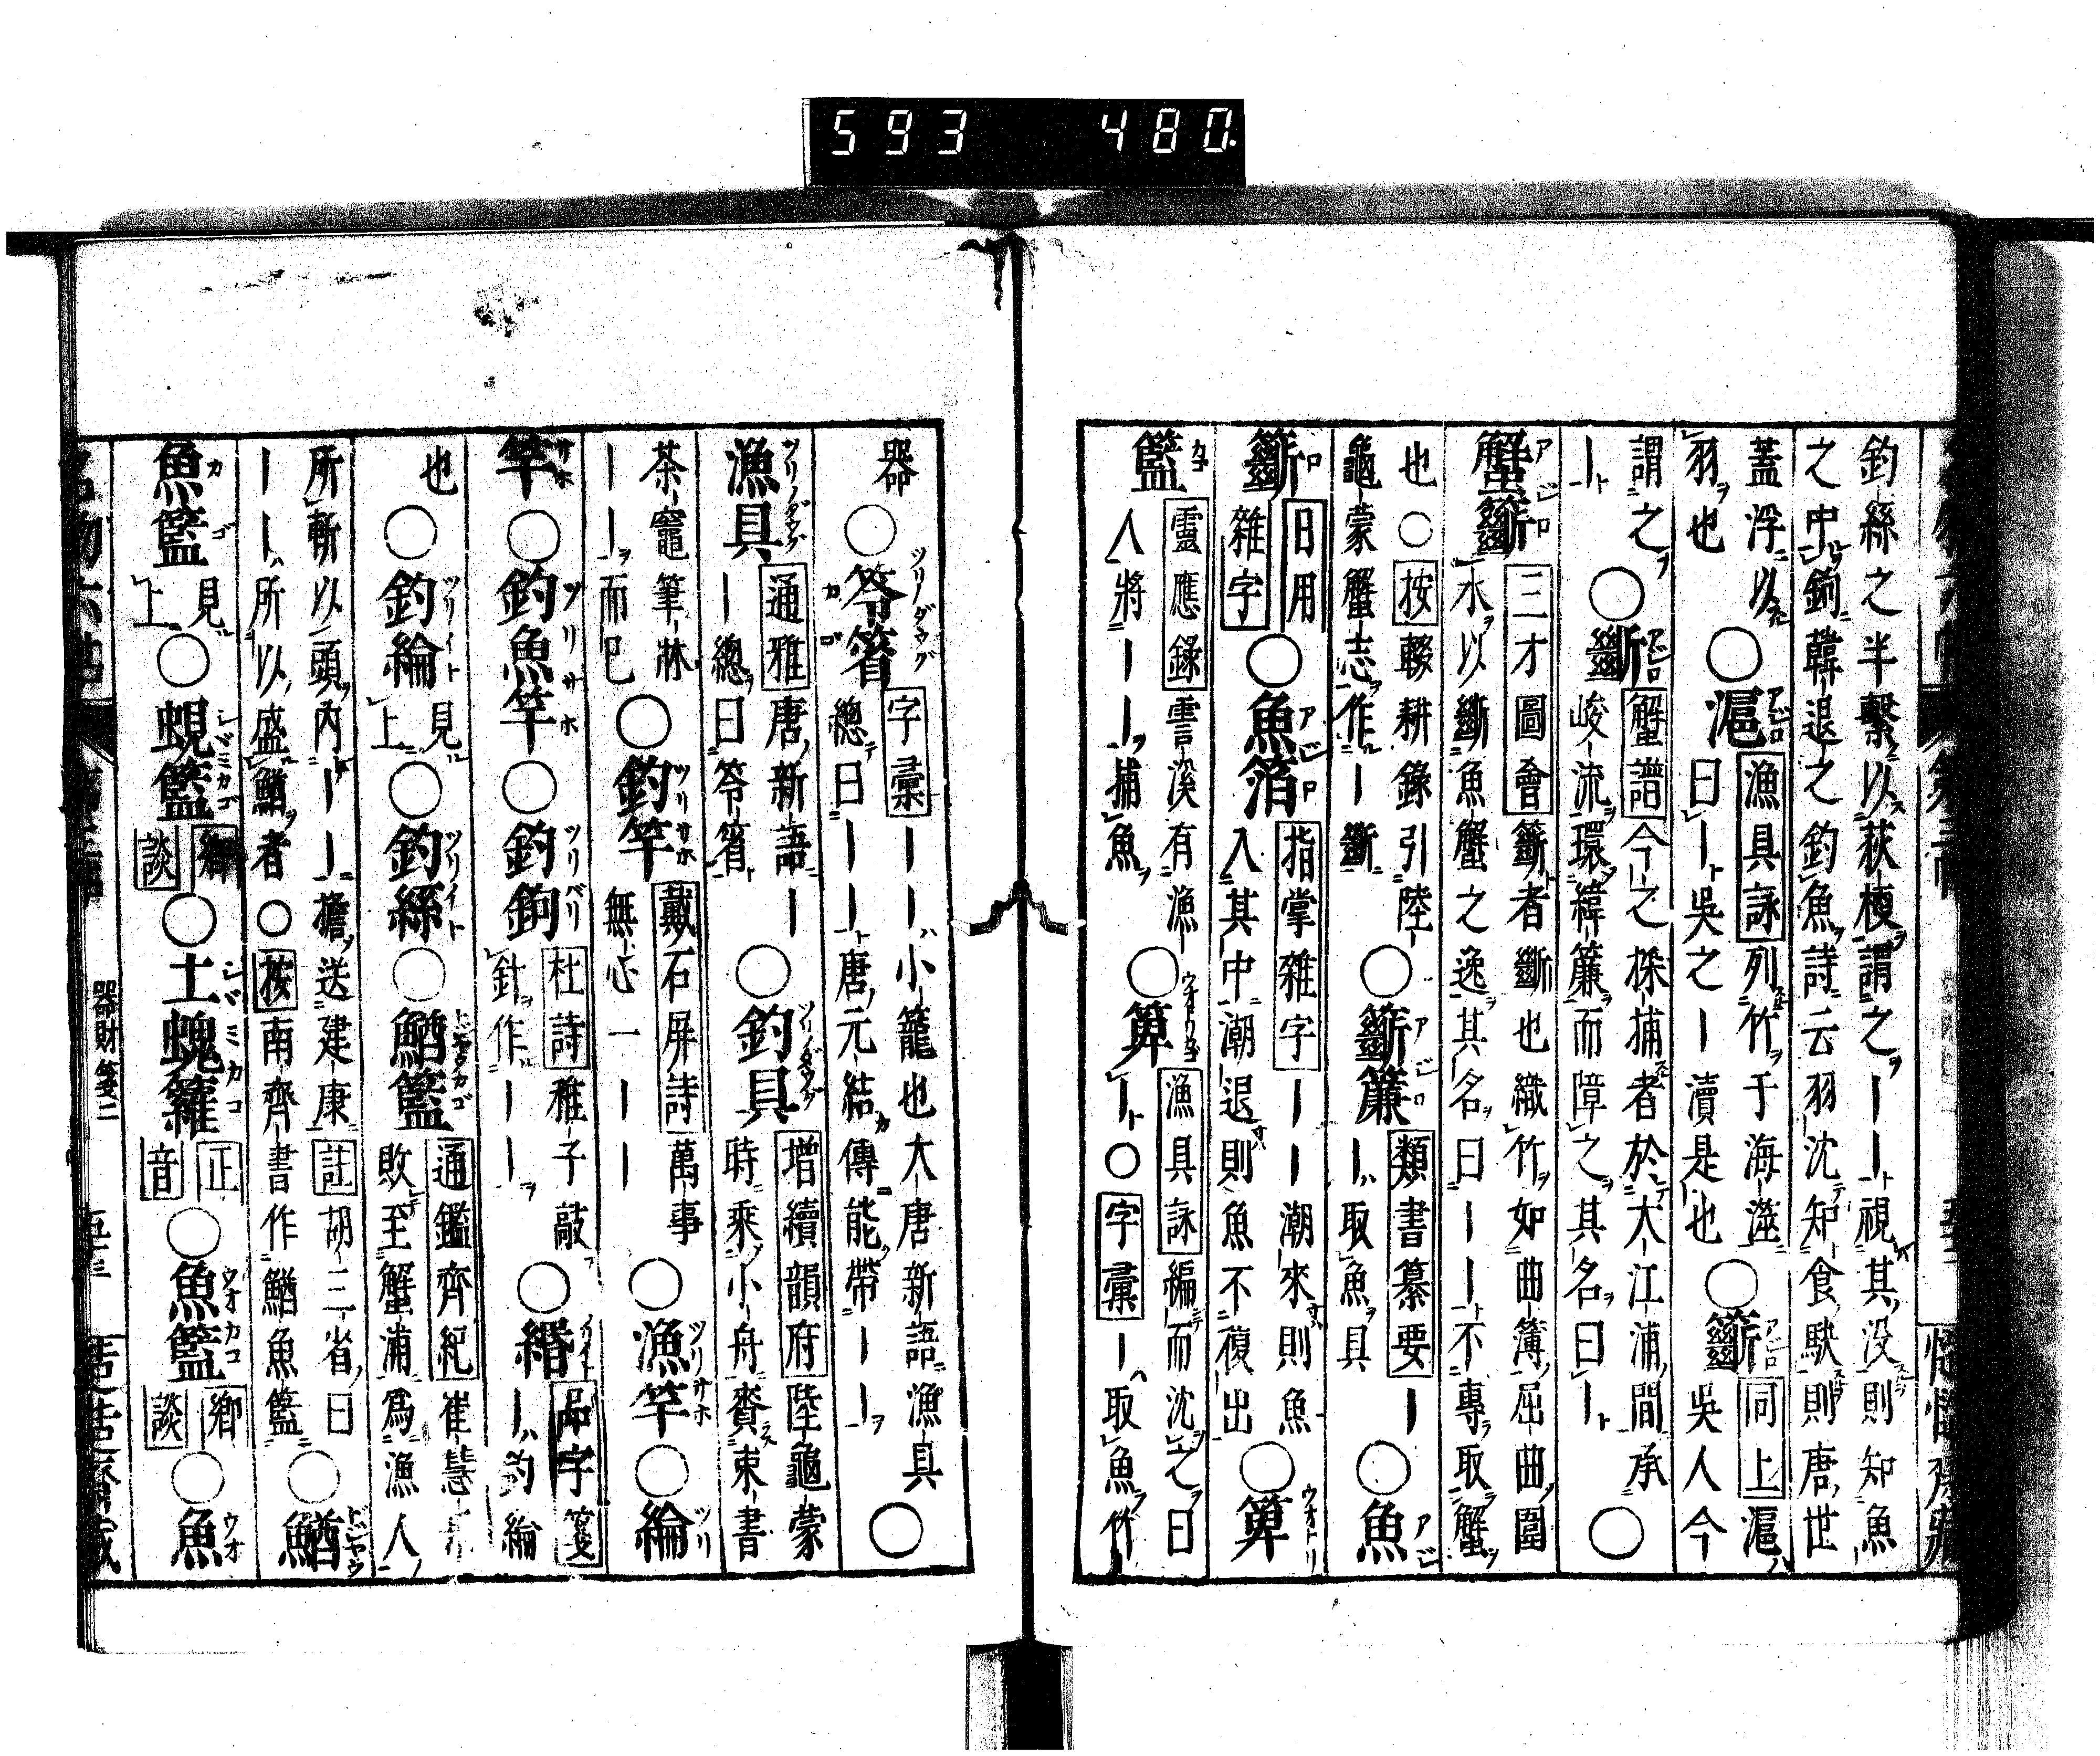 593 480.
釣絲之半繫以荻梗謂之──視其没則知魚
之中鉤韓退之釣魚詩云羽沈知食駃則唐世
蓋浮以
羽也
○滬 漁具詠 列竹于海澨
曰─吳之─瀆是也
○籪 同上 滬
吳人今
謂之
─
○斷 蟹譜 今之採捕者於大江浦間承
峻流環緯簾而障之其名曰─
○
蟹籪 三才圖會 籪者斷也織竹如曲簿屈曲圍
水以斷魚蟹之逸其名曰──不專取蟹
也○按輟耕錄引陸
龜蒙蟹志作─斷
○籪簾 類書纂要 ─
─取魚具
○魚
籪 日用
雜字
○魚箔 指掌雜字 ──潮來則魚
入其中潮退則魚不複出
○箅
籃 靈應錄 霅溪有漁
人將──捕魚
○箅 漁具詠 編而沈之曰
─○字彙─取魚竹
器
○笭箵 字彙 ──小籠也大唐新語漁具
總曰───唐元結傳能帶──
○
漁具 通雅 唐新語─
─總曰笭箵
○釣具 增續韻府 陸龜蒙
時乘小舟賫束書
茶竈筆牀
──而已
○釣竿 戴石屏詩 萬事
無心一──
○漁竿○綸
竿○釣魚竿○釣鉤 杜詩 稚子敲
針作──
○緡 品字箋
─釣綸
也
○釣綸 見
上
○釣絲○鰌籃 通鑑齊紀 崔慧景
敗至蟹浦爲漁人
所斬以頭內──擔送建康 註 胡三省曰
──所以盛鰌者○按南齊書作鰌魚籃
○鰌
魚籃 見
上
○蜆籃 鄉
談
○土螝籮 正
音
○魚籃 鄉
談
○魚
器財箋二